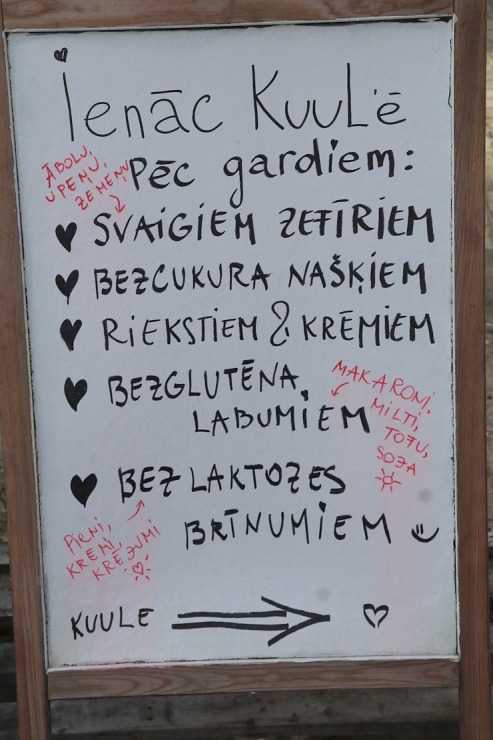 Ienāc KuuL'ē
Pēc gardiem:
ĀBOLU,
UPEŅU,
ZEMEŅU
SVAIGIEM ZEFĪRIEM
BEZCUKURA NAŠĶIEM
RIEKSTIEM & KRĒMIEM
BEZGLUTĒNA
LABUMIEM
MAKARONI,
MILTI,
TOFU,
SOJA
BEZ LAKTOZES
BRĪNUMIEM
PIENI,
KRĒMI,
KRĒJUMI
KUULE